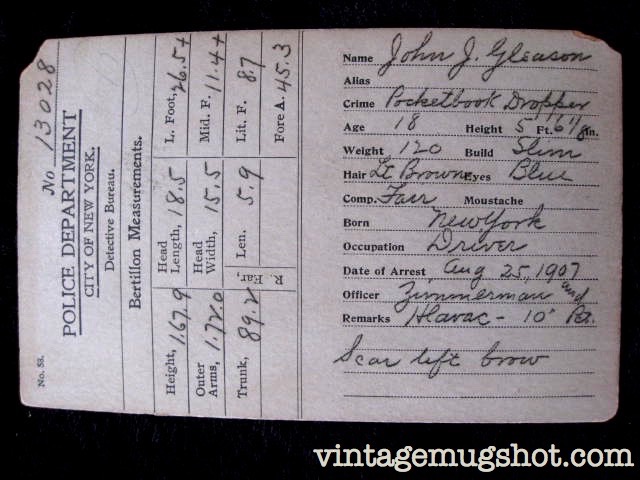 No 13028
POLICE DEPARTMENT
CITY OF NEW YORK,
Detective Bureau.
Bertillon Measurements.
Height, 1.67.9 Head Length, 18.5 L. Foot, 26.5+
Outer Arms, 1.72.0 Head Width, 15.5 Mid. F. 11.4+
Trunk, 89.2 R. Ear, Len. 5.9 Lit. F. 87
Fore A. 45.3
No. 58.
Name John J. Gleason
Alias
Crime Pocketbook Dropper
Age 18 Height 5 Ft. 6 1/8 in.
Weight 120 Build Slim
Hair Lt Brown Eyes Blue
Comp. Fair Moustache
Born New York
Occupation Driver
Date of Arrest Aug 25, 1907
Officer Zimmerman and
Remarks Hlavac - 10" Pct.
Scar left brow
vintagemugshot.com